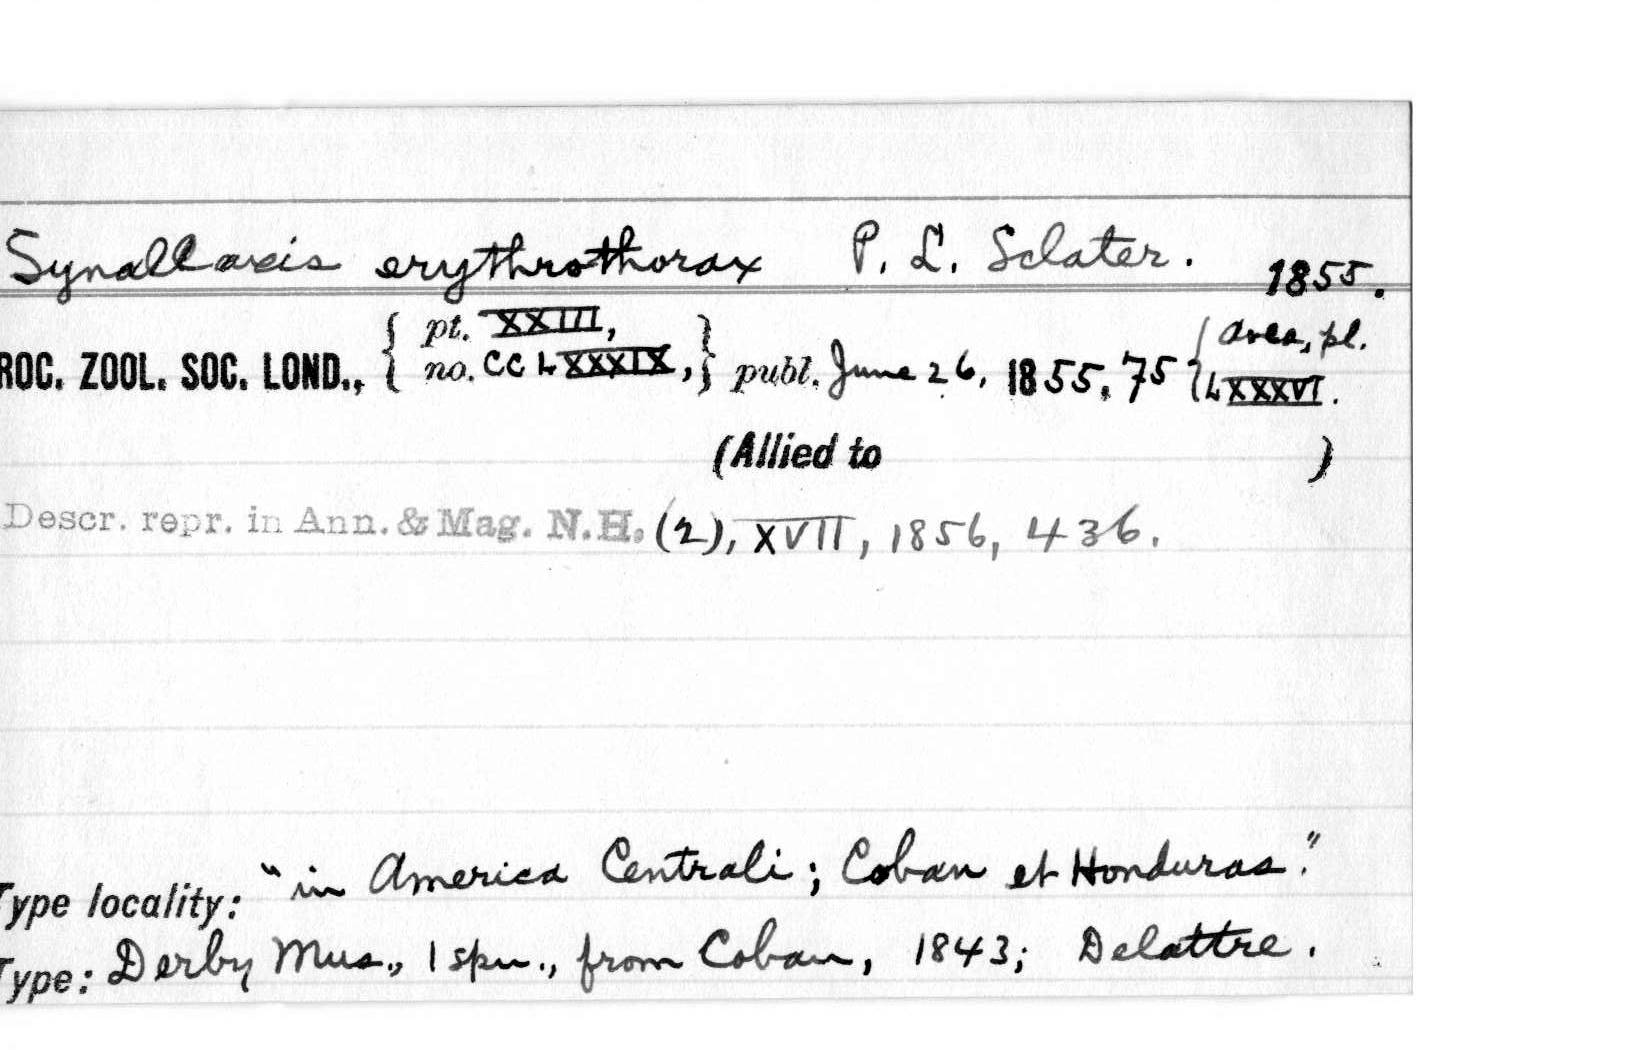 Synallaxis erythrothorax P. L. Sclater. 1855.
ROC. ZOOL. SOC. LOND., { pt. XXIII, no. CCLXXXIX, } publ. June 26, 1855, 75 { Aves, pl. LXXXVI.
(Allied to )
Descr. repr. in Ann. & Mag. N.H. (2), XVII, 1856, 436.
Type locality: "in America Centrali; Coban et Honduras."
Type: Derby Mus., 1 spn., from Coban, 1843; Delattre.